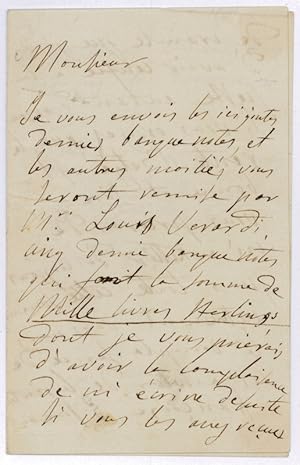 Monsieur
Je vous envois les ici jointes
demies banque notes et
les autres moitiés vous
seront remise par
Mr. Louis Verardi
cinq demie banque notes
qui font la somme de
Mille livres sterlings
dont je vous prierais
d'avoir la complaisance
de m'écrire de suite
si vous les avez reçues